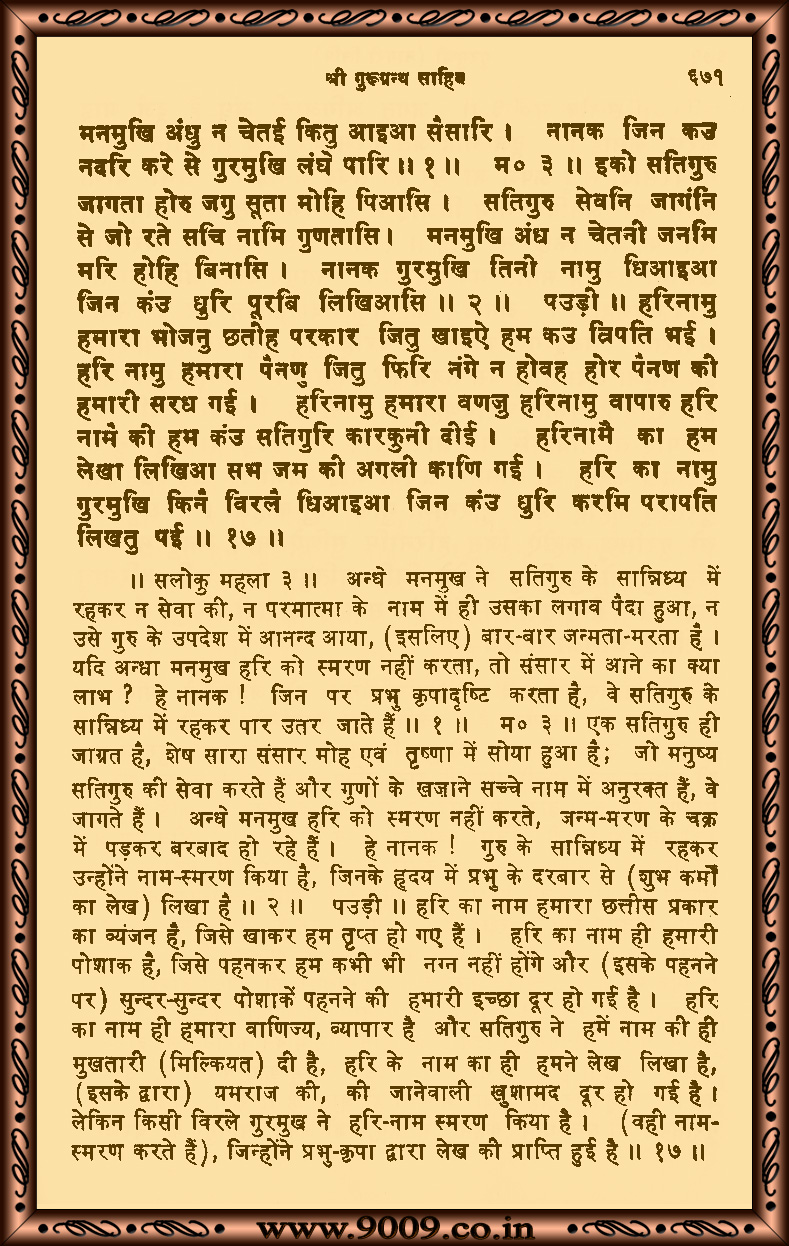 श्री गुरूग्रन्थ साहिब ६७१
मनमुखि अंधु न चेतई कितु आइआ सैसारि । नानक जिन कउ
नदरि करे से गुरमुखि लंघे पारि ॥ १ ॥ म० ३ ॥ इको सतिगुरु
जागता होरु जगु सूता मोहि पिआसि । सतिगुरु सेवनि जागंनि
से जो रते सचि नामि गुणतासि । मनमुखि अंध न चेतनी जनमि
मरि होहि बिनासि । नानक गुरमुखि तिनी नामु धिआइआ
जिन कंउ धुरि पूरबि लिखिआसि ॥ २ ॥ पउड़ी ॥ हरिनामु
हमारा भोजनु छतीह परकार जितु खाइऐ हम कउ त्रिपति भई ।
हरि नामु हमारा पैनणु जितु फिरि नंगे न होवह होर पैनण की
हमारी सरध गई । हरिनामु हमारा वणजु हरिनामु वापारु हरि
नामै की हम कंउ सतिगुरि कारकुनी दीई । हरिनामै का हम
लेखा लिखिआ सभ जम की अगली काणि गई । हरि का नामु
गुरमुखि किनै विरलै धिआइआ जिन कंउ धुरि करमि परापति
लिखतु पई ॥ १७ ॥
॥ सलोकु महला ३ ॥ अन्धे मनमुख ने सतिगुरु के सान्निध्य में
रहकर न सेवा की, न परमात्मा के नाम में ही उसका लगाव पैदा हुआ, न
उसे गुरु के उपदेश में आनन्द आया, (इसलिए) बार-बार जन्मता-मरता है ।
यदि अन्धा मनमुख हरि को स्मरण नहीं करता, तो संसार में आने का क्या
लाभ ? हे नानक ! जिन पर प्रभु कृपादृष्टि करता है, वे सतिगुरु के
सान्निध्य में रहकर पार उतर जाते हैं ॥ १ ॥ म० ३ ॥ एक सतिगुरु ही
जाग्रत है, शेष सारा संसार मोह एवं तृष्णा में सोया हुआ है; जो मनुष्य
सतिगुरु की सेवा करते हैं और गुणों के खज़ाने सच्चे नाम में अनुरक्त हैं, वे
जागते हैं । अन्धे मनमुख हरि को स्मरण नहीं करते, जन्म-मरण के चक्र
में पड़कर बरबाद हो रहे हैं । हे नानक ! गुरु के सान्निध्य में रहकर
उन्होंने नाम-स्मरण किया है, जिनके हृदय में प्रभु के दरबार से (शुभ कर्मों
का लेख) लिखा है ॥ २ ॥ पउड़ी ॥ हरि का नाम हमारा छत्तीस प्रकार
का व्यंजन है, जिसे खाकर हम तृप्त हो गए हैं । हरि का नाम ही हमारी
पोशाक है, जिसे पहनकर हम कभी भी नग्न नहीं होंगे और (इसके पहनने
पर) सुन्दर-सुन्दर पोशाकें पहनने की हमारी इच्छा दूर हो गई है । हरि
का नाम ही हमारा वाणिज्य, व्यापार है और सतिगुरु ने हमें नाम की ही
मुखतारी (मिल्कियत) दी है, हरि के नाम का ही हमने लेख लिखा है,
(इसके द्वारा) यमराज की, की जानेवाली खुशामद दूर हो गई है ।
लेकिन किसी विरले गुरमुख ने हरि-नाम स्मरण किया है । (वही नाम-
स्मरण करते हैं), जिन्होंने प्रभु-कृपा द्वारा लेख की प्राप्ति हुई है ॥ १७ ॥
www.9009.co.in